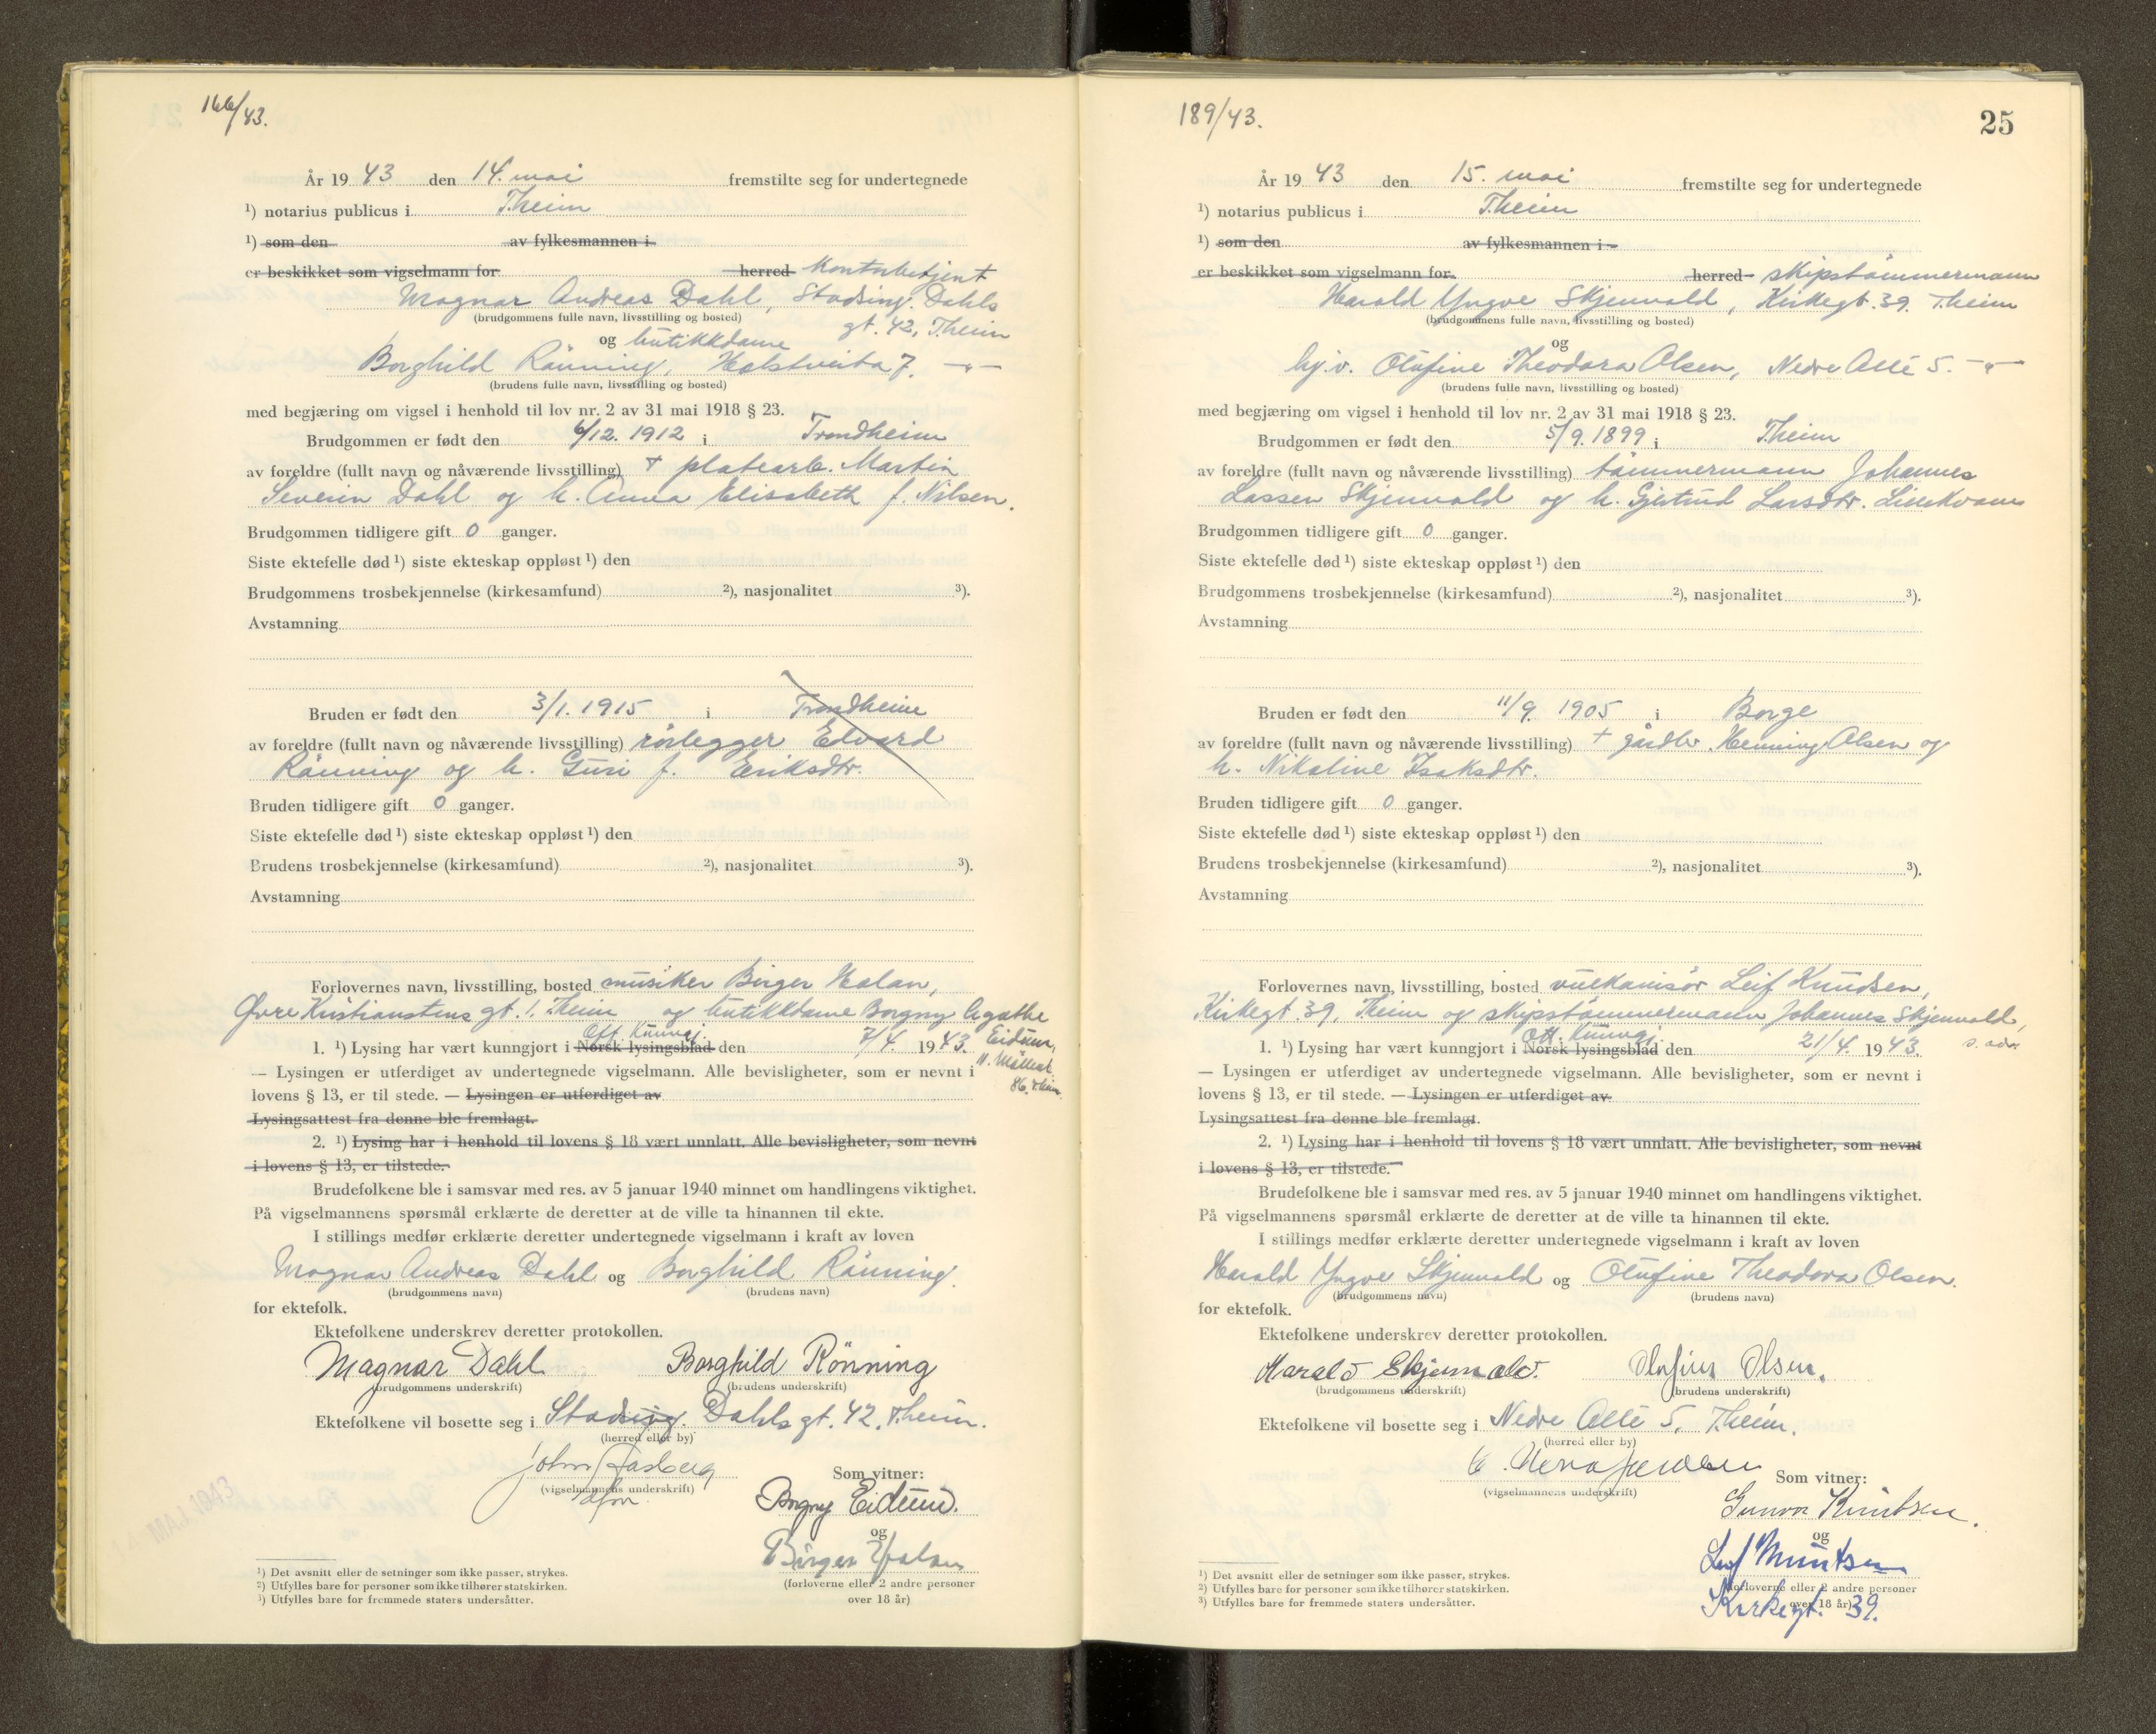 166/43.
År 19 43 den 14. mai fremstilte seg for undertegnede
¹) notarius publicus i T.heim
¹) som den av fylkesmannen i
er beskikket som vigselmann for herred kontorbetjent
Magnar Andreas Dahl, Stadsing. Dahls
(brudgommens fulle navn, livsstilling og bosted) gt. 42, T.heim
og butikkdame
Borghild Rönning, Holstveita 7. —"—
(brudens fulle navn, livsstilling og bosted)
med begjæring om vigsel i henhold til lov nr. 2 av 31 mai 1918 § 23.
Brudgommen er født den 6/12. 1912 i Trondheim
av foreldre (fullt navn og nåværende livsstilling) + platearb. Martin
Severin Dahl og h. Anna Elisabeth f. Nilsen.
Brudgommen tidligere gift 0 ganger.
Siste ektefelle død ¹) siste ekteskap oppløst ¹) den
Brudgommens trosbekjennelse (kirkesamfund) ²), nasjonalitet ³).
Avstamning
Bruden er født den 3/1. 1915 i Trondheim
av foreldre (fullt navn og nåværende livsstilling) rörlegger Edvard
Rönning og h. Guri f. Eriksdtr.
Bruden tidligere gift 0 ganger.
Siste ektefelle død ¹) siste ekteskap oppløst ¹) den
Brudens trosbekjennelse (kirkesamfund) ²), nasjonalitet ³).
Avstamning
Forlovernes navn, livsstilling, bosted musiker Birger Halan,
Øvre Kristianstens gt. 1. T.heim og butikkdame Borgny Agathe
Off. kunngj. Eidum,
1. ¹) Lysing har vært kunngjort i Norsk lysingsblad den 7/4. 19 43.
N. Möllenb. 86, T.heim
— Lysingen er utferdiget av undertegnede vigselmann. Alle bevisligheter, som er nevnt i
lovens § 13, er til stede. — Lysingen er utferdiget av
Lysingsattest fra denne ble fremlagt.
2. ¹) Lysing har i henhold til lovens § 18 vært unnlatt. Alle bevisligheter, som nevnt
i lovens § 13, er tilstede.
Brudefolkene ble i samsvar med res. av 5 januar 1940 minnet om handlingens viktighet.
På vigselmannens spørsmål erklærte de deretter at de ville ta hinannen til ekte.
I stillings medfør erklærte deretter undertegnede vigselmann i kraft av loven
Magnar Andreas Dahl og Borghild Rönning.
(brudgommens navn) (brudens navn)
for ektefolk.
Ektefolkene underskrev deretter protokollen.
Magnar Dahl Borghild Rönning
(brudgommens underskrift) (brudens underskrift)
Ektefolkene vil bosette seg i Stadsing. Dahls gt. 42, T.heim.
(herred eller by)
John Aasberg
(vigselmannens underskrift) Som vitner:
Borgny Eidum.
og
Birger Halan
(forloverne eller 2 andre personer
over 18 år)
¹) Det avsnitt eller de setninger som ikke passer, strykes.
²) Utfylles bare for personer som ikke tilhører statskirken.
³) Utfylles bare for fremmede staters undersåtter.
189/43.
25
År 19 43 den 15. mai fremstilte seg for undertegnede
¹) notarius publicus i T.heim
¹) som den av fylkesmannen i
er beskikket som vigselmann for herred skipstömmermann
Harald Yngve Skjenvald, Kirkegt. 39. T.heim
(brudgommens fulle navn, livsstilling og bosted)
og
hj.v. Olufine Theodora Olsen, Nedre Allé 5. —"—
(brudens fulle navn, livsstilling og bosted)
med begjæring om vigsel i henhold til lov nr. 2 av 31 mai 1918 § 23.
Brudgommen er født den 5/9. 1899 i T.heim
av foreldre (fullt navn og nåværende livsstilling) tömmermann Johannes
Lassen Skjenvald og h. Gjertrud Larsdtr. Lillekvam
Brudgommen tidligere gift 0 ganger.
Siste ektefelle død ¹) siste ekteskap oppløst ¹) den
Brudgommens trosbekjennelse (kirkesamfund) ²), nasjonalitet ³).
Avstamning
Bruden er født den 11/9. 1905 i Borge
av foreldre (fullt navn og nåværende livsstilling) + gårdbr. Henning Olsen og
h. Nikoline Isaksdtr.
Bruden tidligere gift 0 ganger.
Siste ektefelle død ¹) siste ekteskap oppløst ¹) den
Brudens trosbekjennelse (kirkesamfund) ²), nasjonalitet ³).
Avstamning
Forlovernes navn, livsstilling, bosted vulkanisör Leif Knudsen,
Kirkegt. 39, T.heim og skipstömmermann Johannes Skjenvald,
Off. kunngj. s. adr.
1. ¹) Lysing har vært kunngjort i Norsk lysingsblad den 21/4. 19 43.
— Lysingen er utferdiget av undertegnede vigselmann. Alle bevisligheter, som er nevnt i
lovens § 13, er til stede. — Lysingen er utferdiget av
Lysingsattest fra denne ble fremlagt.
2. ¹) Lysing har i henhold til lovens § 18 vært unnlatt. Alle bevisligheter, som nevnt
i lovens § 13, er tilstede.
Brudefolkene ble i samsvar med res. av 5 januar 1940 minnet om handlingens viktighet.
På vigselmannens spørsmål erklærte de deretter at de ville ta hinannen til ekte.
I stillings medfør erklærte deretter undertegnede vigselmann i kraft av loven
Harald Yngve Skjenvald og Olufine Theodora Olsen.
(brudgommens navn) (brudens navn)
for ektefolk.
Ektefolkene underskrev deretter protokollen.
Harald Skjenvald. Olufine Olsen.
(brudgommens underskrift) (brudens underskrift)
Ektefolkene vil bosette seg i Nedre Allé 5, T.heim.
(herred eller by)
(vigselmannens underskrift) Som vitner:
Gunvor Knutsen.
og
Leif Knutsen
(forloverne eller 2 andre personer
over 18 år)
Kirkegt. 39.
¹) Det avsnitt eller de setninger som ikke passer, strykes.
²) Utfylles bare for personer som ikke tilhører statskirken.
³) Utfylles bare for fremmede staters undersåtter.